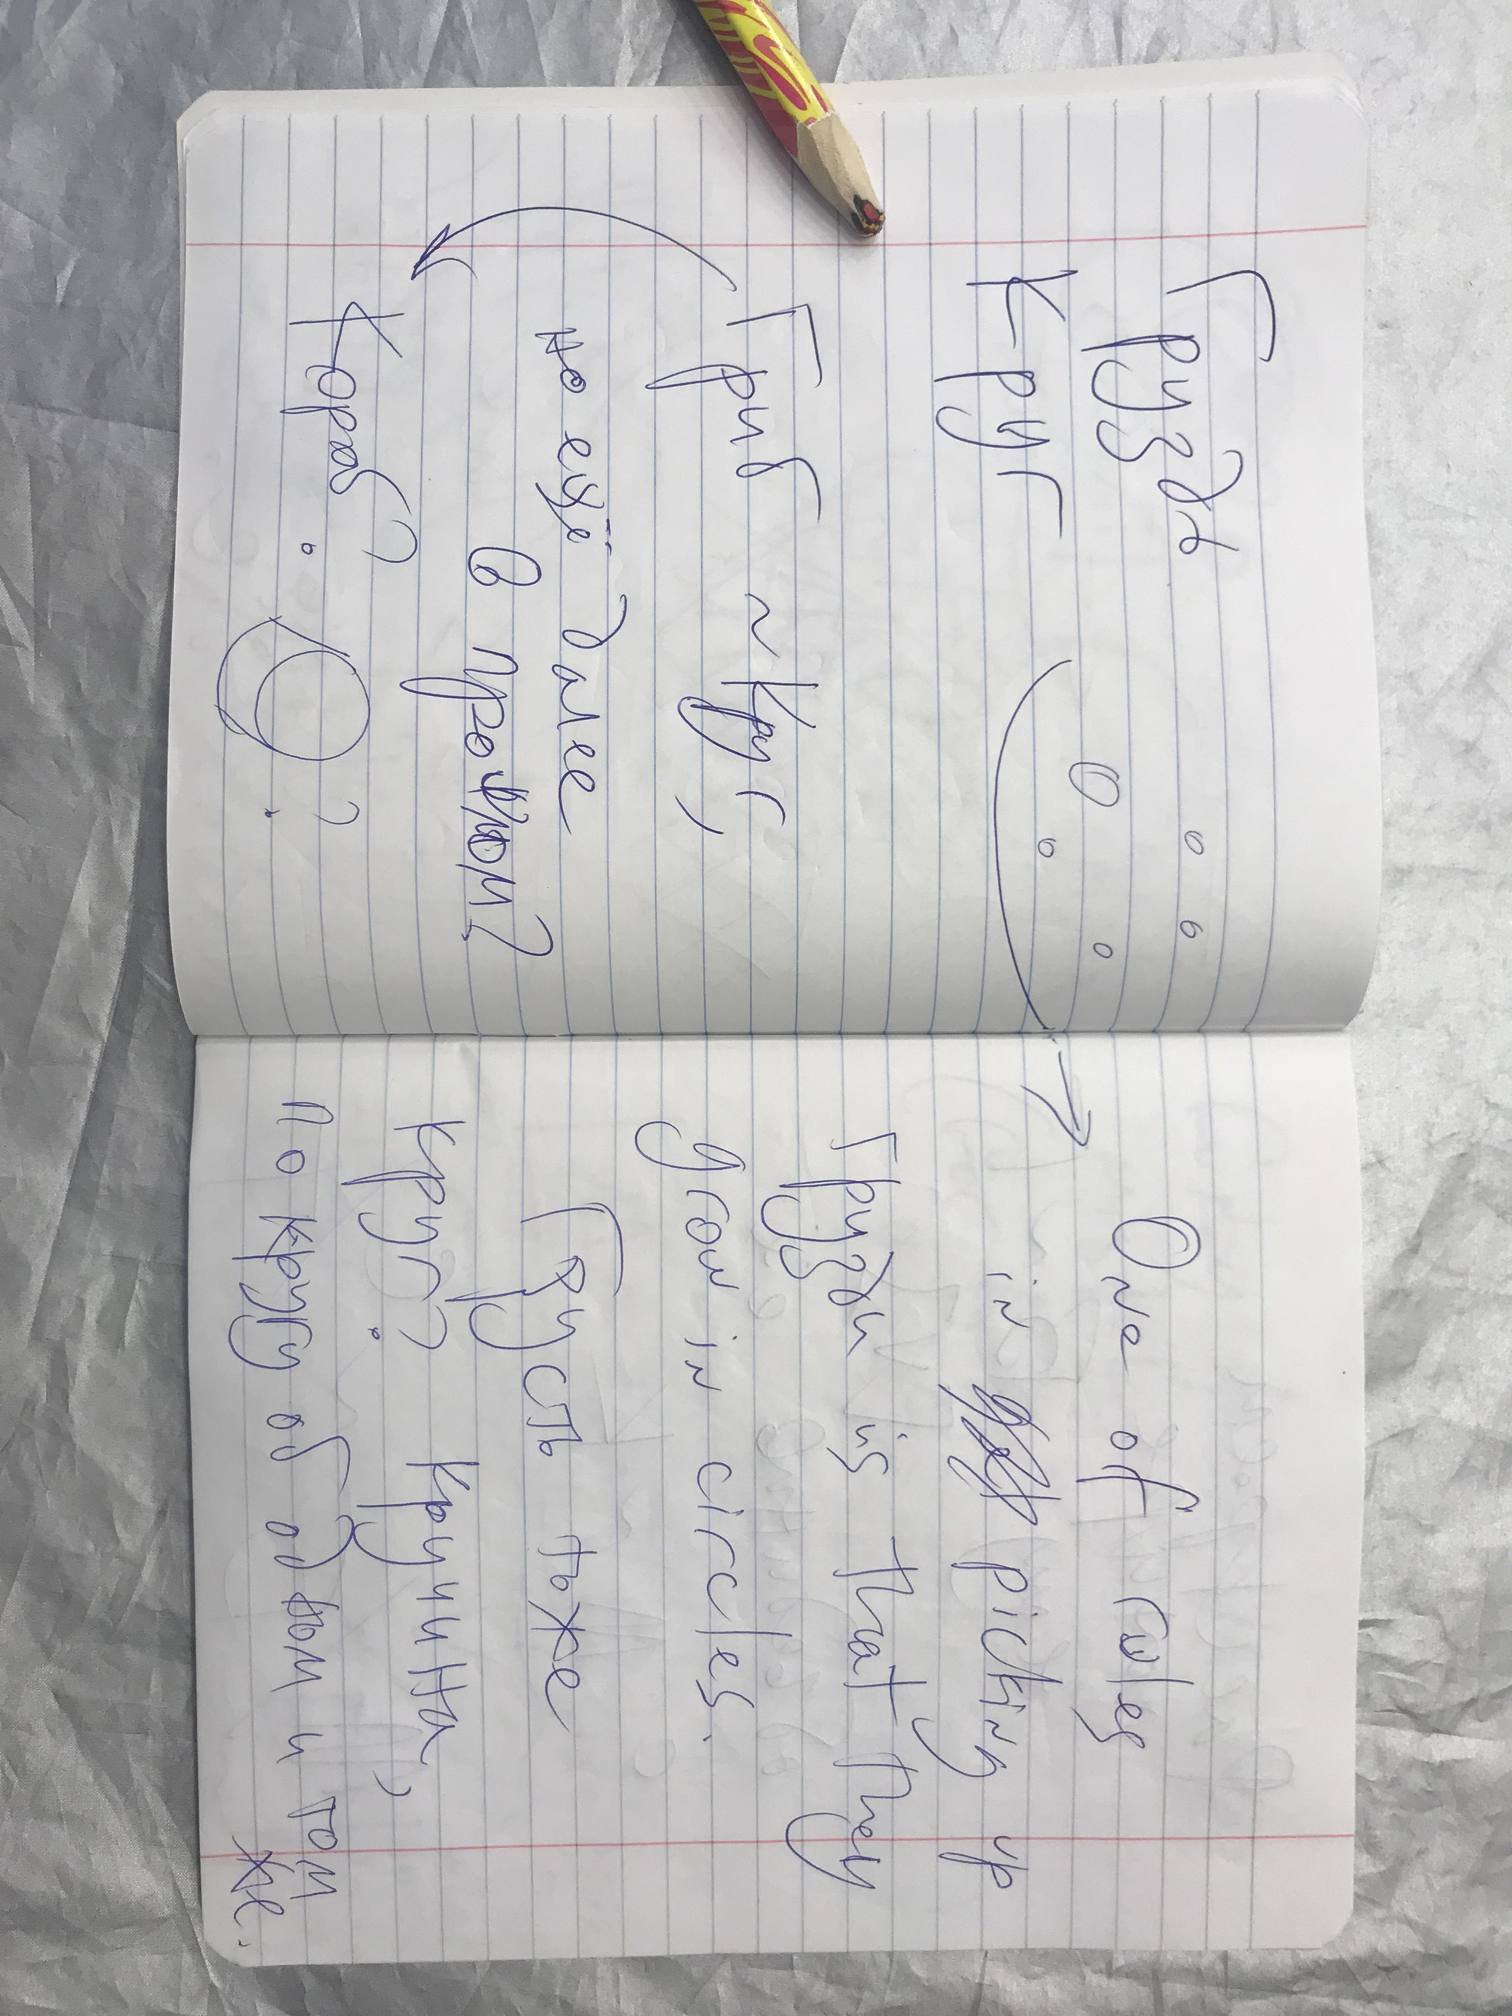 Груздь
Круг
Гриб ~ Круг,
но ещё далее
в прошлом?
Короб?
?
One of rules
in picking up
Грузди is that they
grow in circles.
Грусть тоже
круг? Кручина,
по кругу об одном и том
же.